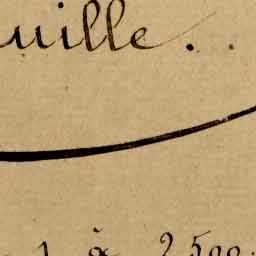 uille.
1 à 2500.